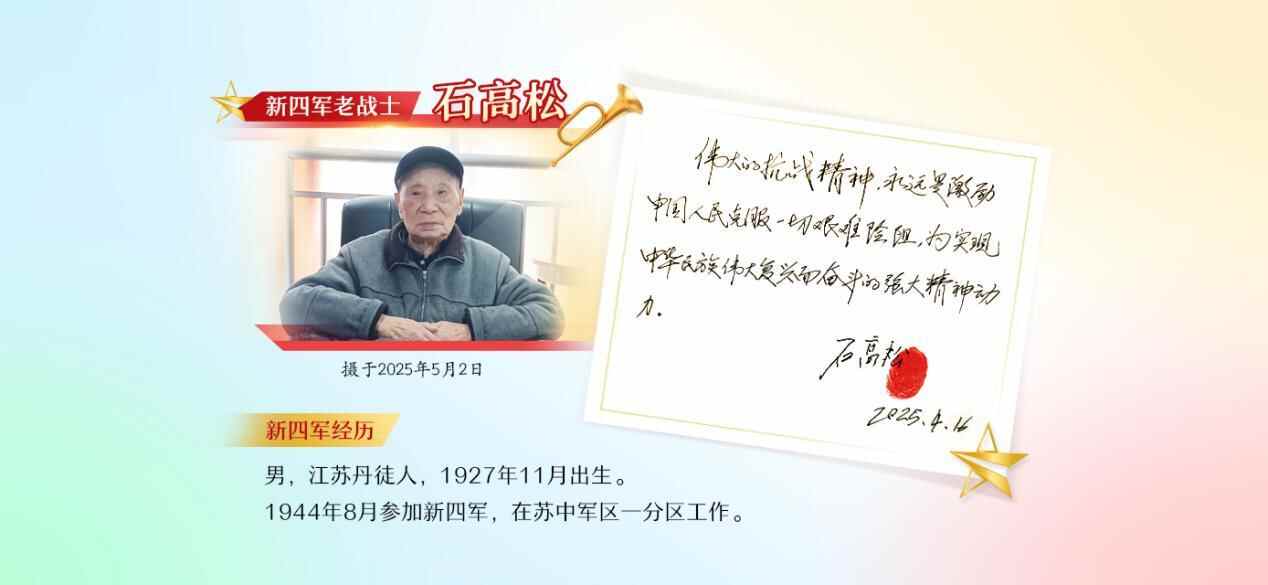 新四军老战士 石高松
伟大的抗战精神，永远是激励
中国人民克服一切艰难险阻，为实现
中华民族伟大复兴而奋斗的强大精神动
力。
石高松
2025.4.16
摄于2025年5月2日
新四军经历
男，江苏丹徒人，1927年11月出生。
1944年8月参加新四军，在苏中军区一分区工作。